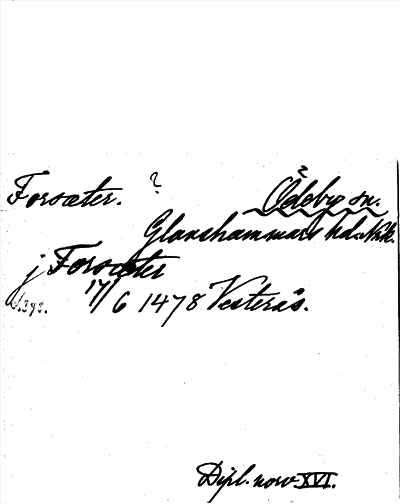 Forsæter. ?
Ödeby sn.
Glanshammars hd. Närk.
j Forsæter
17/6 1478 Vesterås.
Dipl. norv. XVI.